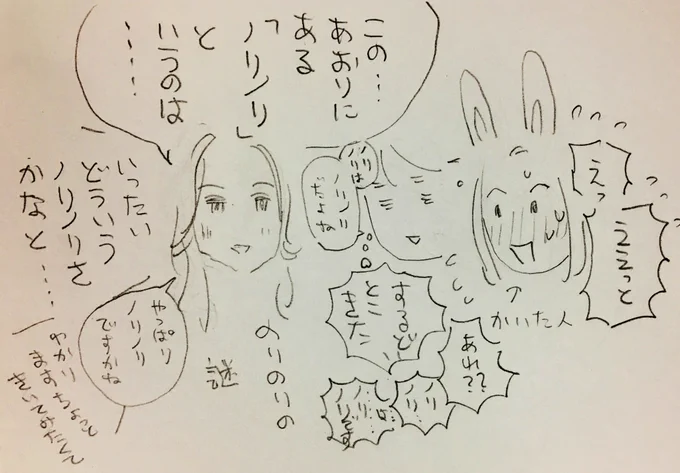 えっ
ええっと
かいた人
あれ??
ノリ
ノリ
するどい
とこ
きた、
ノリ
ノリは
ノリノリ
だよね
この…
あおりに
ある
「ノリノリ」
と
いうのは
……
いったい
どういう
ノリノリさ
かなと……
のりのりの
謎
やっぱり
ノリノリ
ですかね
わかり
ますちょっと